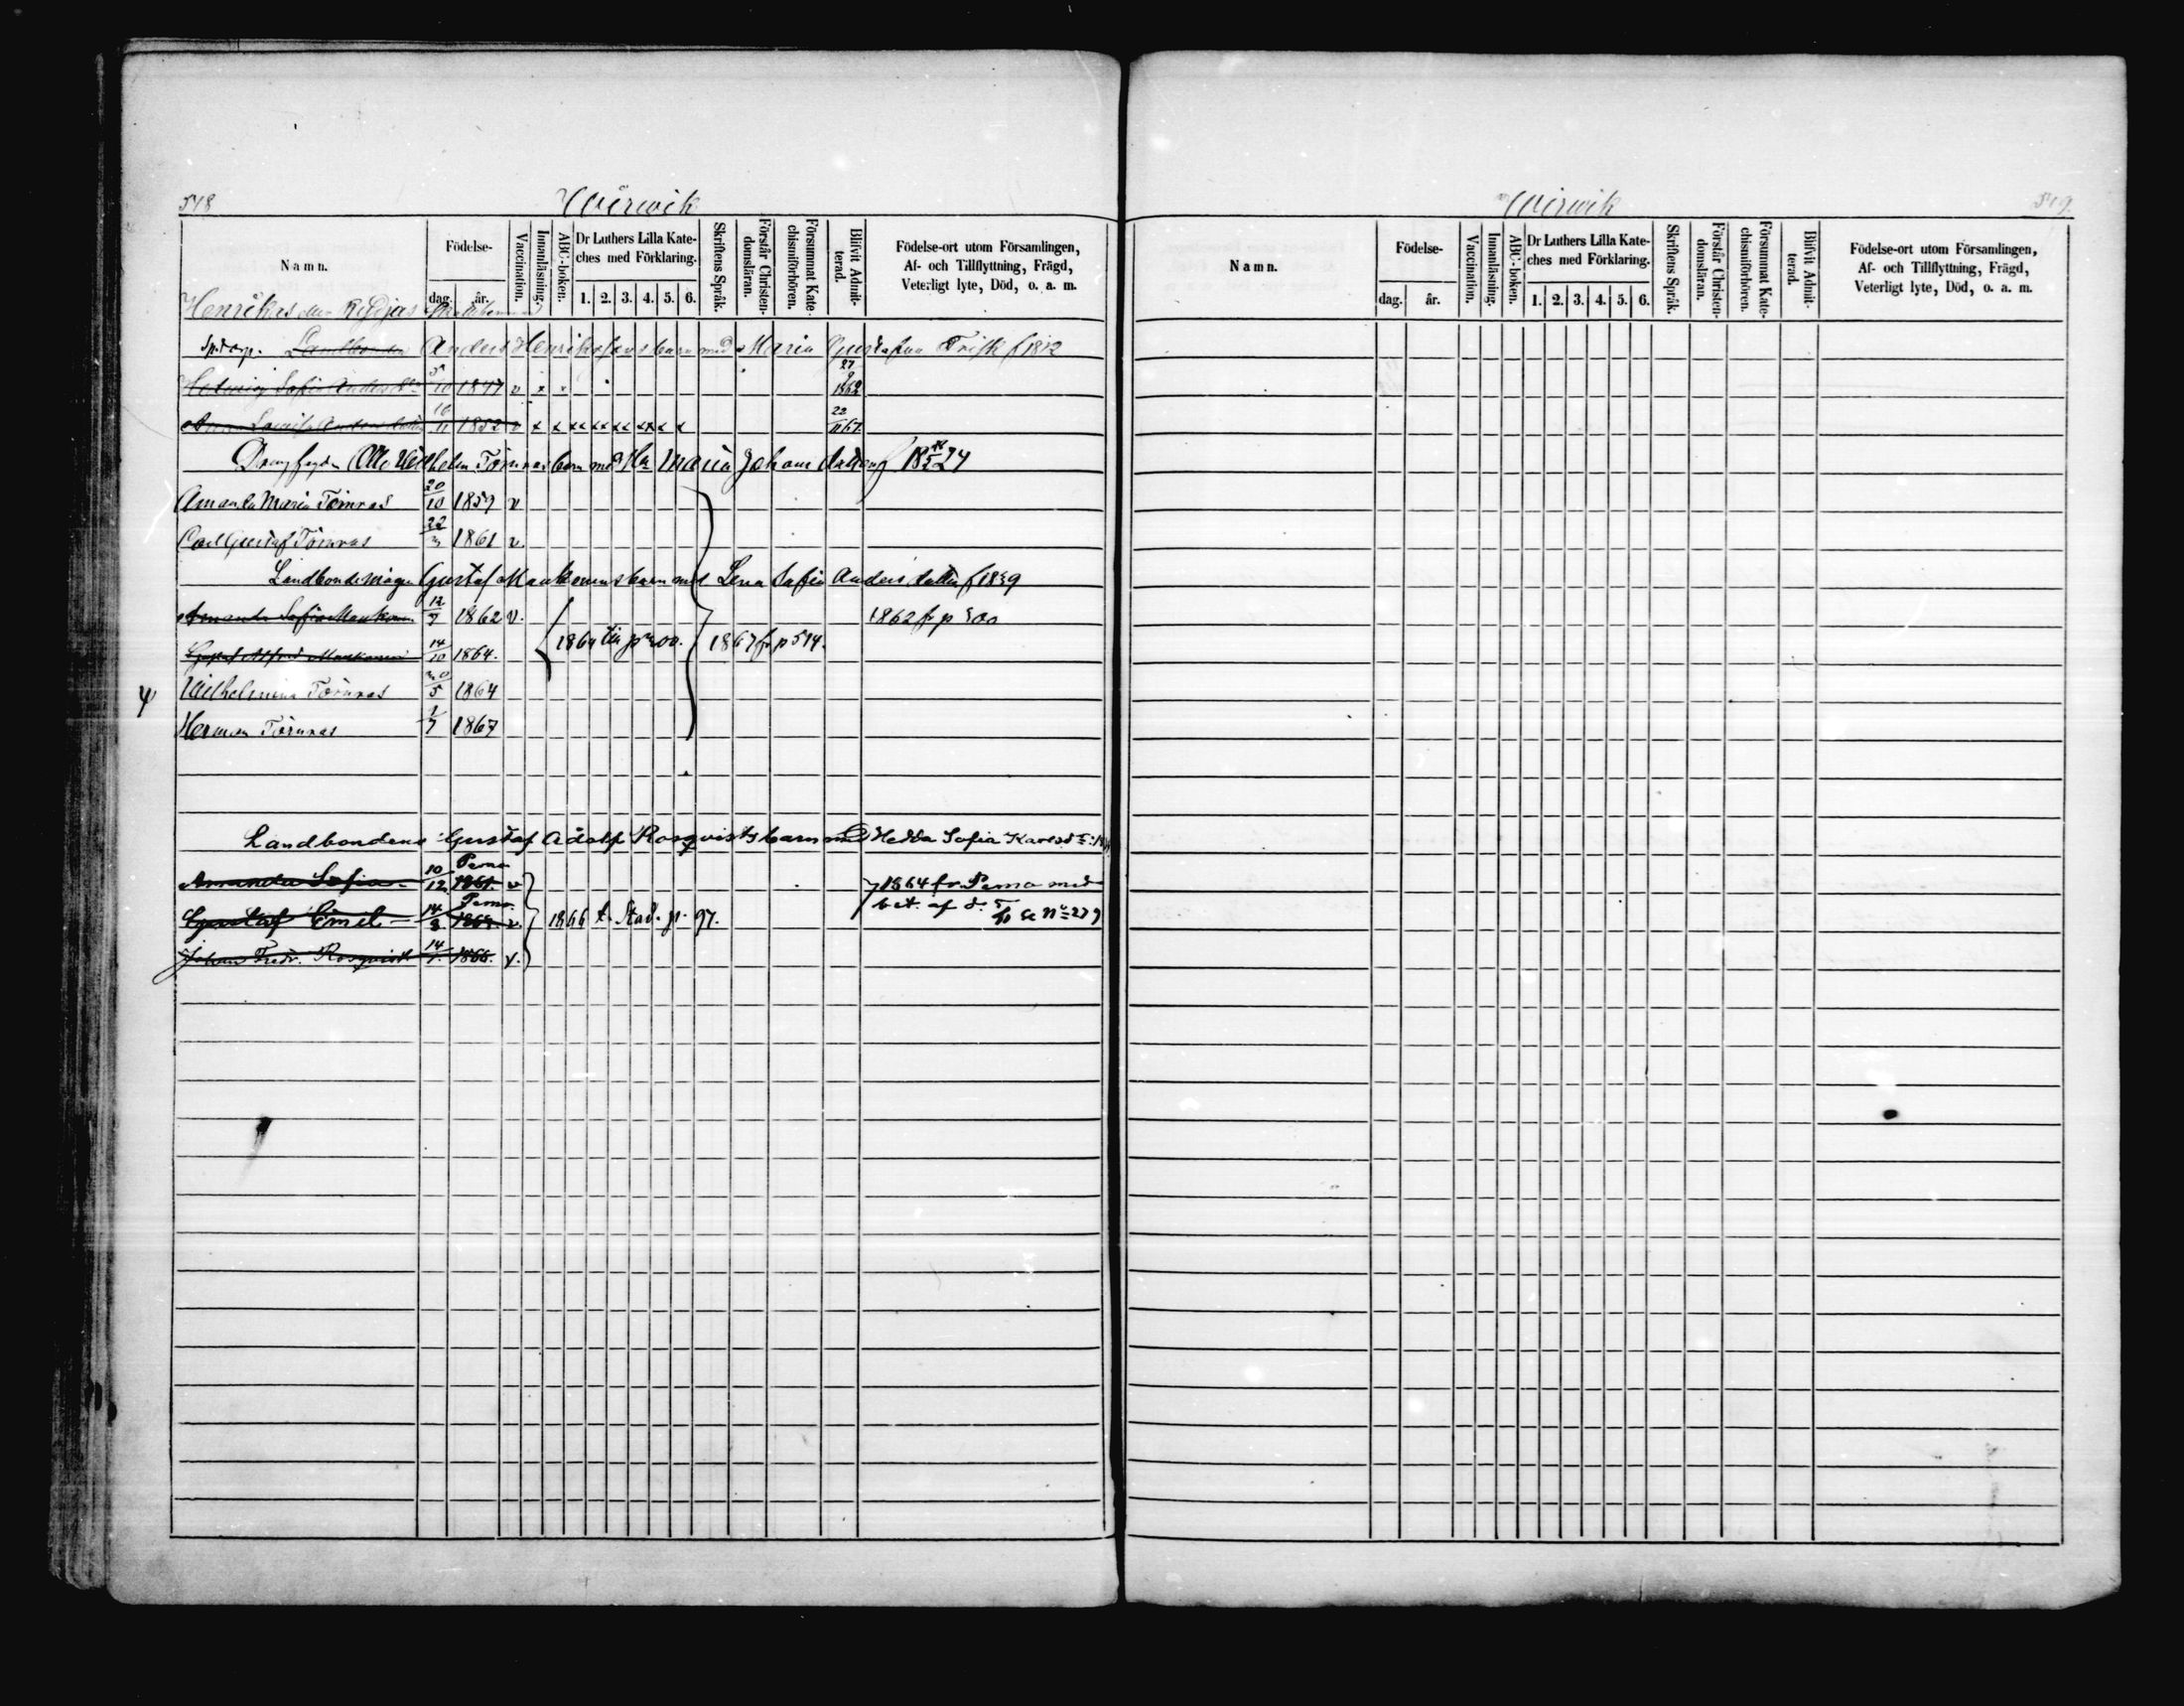 548
Wirwik
Namn.
Födelse-
dag.
år.
Vaccination.
Innanläsning.
ABC-boken.
Dr Luthers Lilla Kate-
ches med Förklaring.
1. 2. 3. 4. 5. 6.
Skriftens Språk.
Förstår Christen-
domsläran.
Försummat Kate-
chismiförhören.
Blifvit Admit-
terad.
Födelse-ort utom Församlingen,
Af- och Tillflyttning, Frägd,
Veterligt lyte, Död, o. a. m.
Henrikas eller
Landbonden Anders Henrikssons barn med Maria Gustafsn Frisk f 1812
Hedwig Sofia Andersdr 5/10 1847 v x x 27/9 1862
Anna Lovisa Andersdotter 16/11 1852 v x x xx xx xx xx x x 22/11 67.
Otto Wilhelm Törnroos barn med Maria Johans dotter f 18 24
Amanda Maria Törnroos 20/10 1859 v
Carl Gustaf Törnroos 22/3 1861 v.
Landbondemågen Gustaf Maukonens barn med Lena Sofia Anders dotter f 1839
Amanda Sofia Maukonen 12/7 1862 v. 1862 fr p 500
Gustaf Alfred Maukonen 14/10 1864. 1864 till p 500. 1867 fr p 514.
Wilhelmina Törnroos 30/5 1864
Herman Törnroos 1/7 1867
Landbondens Gustaf Adolf Rosqvists barn med Hedda Sofia Karlsd
Amanda Sofia 10/12 Perno 1861. v 1864 fr. Perno med
bet. af d.
Gustaf Emil 14/8 Perno. 1863 v 1866 t. Stad. p. 97. No 279
Johan Fredr. Rosqvist 14/1. 1866. v.
Wirwik
549.
Namn.
Födelse-
dag.
år.
Vaccination.
Innanläsning.
ABC-boken.
Dr Luthers Lilla Kate-
ches med Förklaring.
1. 2. 3. 4. 5. 6.
Skriftens Språk.
Förstår Christen-
domsläran.
Försummat Kate-
chismiförhören.
Blifvit Admit-
terad.
Födelse-ort utom Församlingen,
Af- och Tillflyttning, Frägd,
Veterligt lyte, Död, o. a. m.